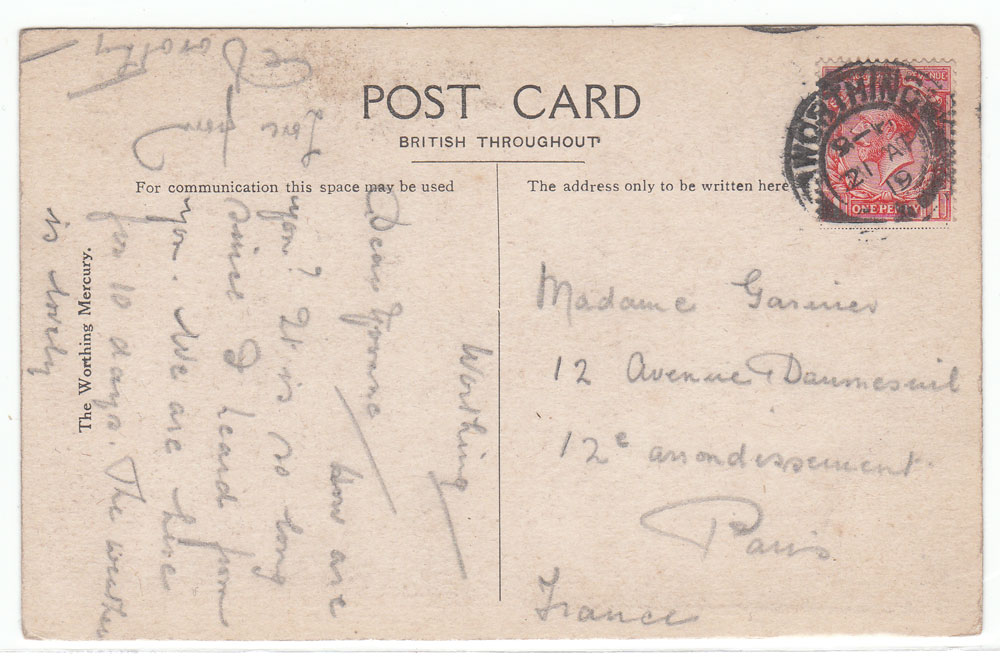 POST CARD
BRITISH THROUGHOUT
For communication this space may be used
The address only to be written here
The Worthing Mercury.
WORTHING
21 AP
19
REVENUE
ONE PENNY
Worthing
Dear Yvonne
how are
you? It is so long
since I heard from
you. We are here
for 10 days. The weather
is lovely
Love from
Dorothy
Madame Garnier
12 Avenue Daumesnil
12e arrondissement
Paris
France